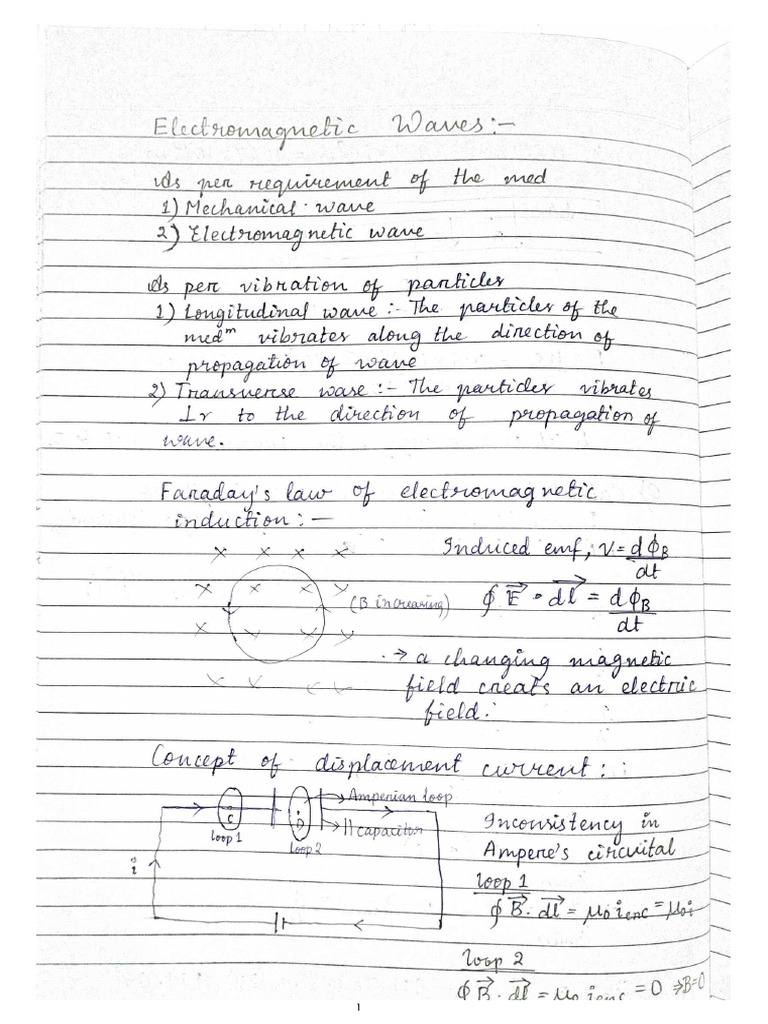 Electromagnetic Waves:-
As per requirement of the med
1) Mechanical wave
2) Electromagnetic wave
As per vibration of particles
1) Longitudinal wave :- The particles of the
medᵐ vibrates along the direction of
propagation of wave
2) Transverse wave :- The particles vibrates
⊥r to the direction of propagation of
wave.
Faraday's law of electromagnetic
induction :-
Induced emf, V = dϕB/dt
(B increasing)
∮ E→ · dl→ = dϕB/dt
→ a changing magnetic
field creats an electric
field.
Concept of displacement current :
Amperian loop
C
D
loop 1
loop 2
|| capacitor
i
Inconsistency in
Ampere's circuital
loop 1
∮ B→ · dl→ = μ0 ienc = μ0i
loop 2
∮ B→ · dl→ = μ0 ienc = 0 ⇒ B=0
1